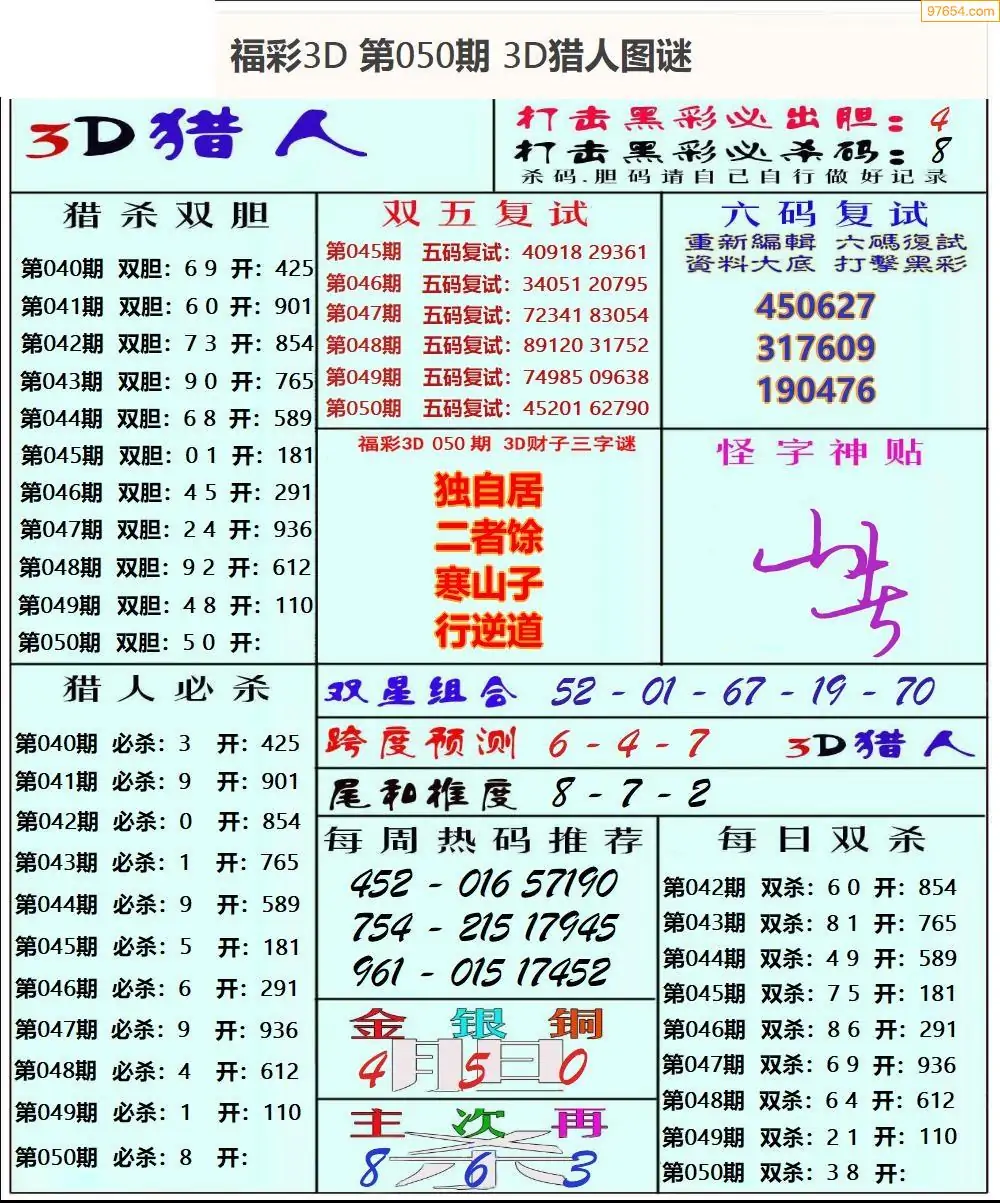 97654.com
福彩3D 第050期 3D猎人图谜
3D猎人
打击黑彩必出胆：4
打击黑彩必杀码：8
杀码.胆码请自己自行做好记录
猎杀双胆
第040期 双胆：6 9 开：425
第041期 双胆：6 0 开：901
第042期 双胆：7 3 开：854
第043期 双胆：9 0 开：765
第044期 双胆：6 8 开：589
第045期 双胆：0 1 开：181
第046期 双胆：4 5 开：291
第047期 双胆：2 4 开：936
第048期 双胆：9 2 开：612
第049期 双胆：4 8 开：110
第050期 双胆：5 0 开：
双五复试
第045期 五码复试：40918 29361
第046期 五码复试：34051 20795
第047期 五码复试：72341 83054
第048期 五码复试：89120 31752
第049期 五码复试：74985 09638
第050期 五码复试：45201 62790
六码复试
重新編輯 六碼復試
資料大底 打擊黑彩
450627
317609
190476
福彩3D 050 期 3D财子三字谜
独自居
二者馀
寒山子
行逆道
怪字神贴
猎人必杀
第040期 必杀：3 开：425
第041期 必杀：9 开：901
第042期 必杀：0 开：854
第043期 必杀：1 开：765
第044期 必杀：9 开：589
第045期 必杀：5 开：181
第046期 必杀：6 开：291
第047期 必杀：9 开：936
第048期 必杀：4 开：612
第049期 必杀：1 开：110
第050期 必杀：8 开：
双星组合 52 - 01 - 67 - 19 - 70
跨度预测 6 - 4 - 7 3D猎人
尾和推度 8 - 7 - 2
每周热码推荐
452 - 016 57190
754 - 215 17945
961 - 015 17452
金 银 铜
胆
4 5 0
主 次 再
杀
8 6 3
每日双杀
第042期 双杀：6 0 开：854
第043期 双杀：8 1 开：765
第044期 双杀：4 9 开：589
第045期 双杀：7 5 开：181
第046期 双杀：8 6 开：291
第047期 双杀：6 9 开：936
第048期 双杀：6 4 开：612
第049期 双杀：2 1 开：110
第050期 双杀：3 8 开：